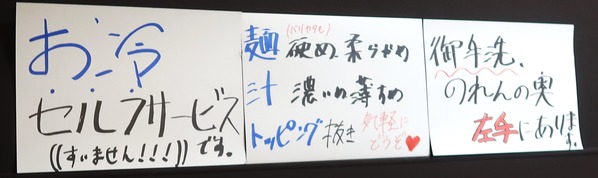 お冷
セルフサービス
((すいません!!!))です。
麺 (バリカタも) 硬め、柔らかめ
汁 濃いめ 薄め
トッピング 抜き 気軽にどうぞ♥
御手洗、
のれんの奥
左手にあります。